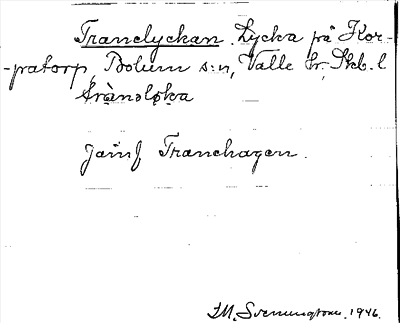 Tranelyckan. Lycka på Kor-
-patorp, Bolum s:n, Valle hr, Skb. l
trànslỳka
Jämf Tranehagen.
I.M. Svenungsson. 1946.